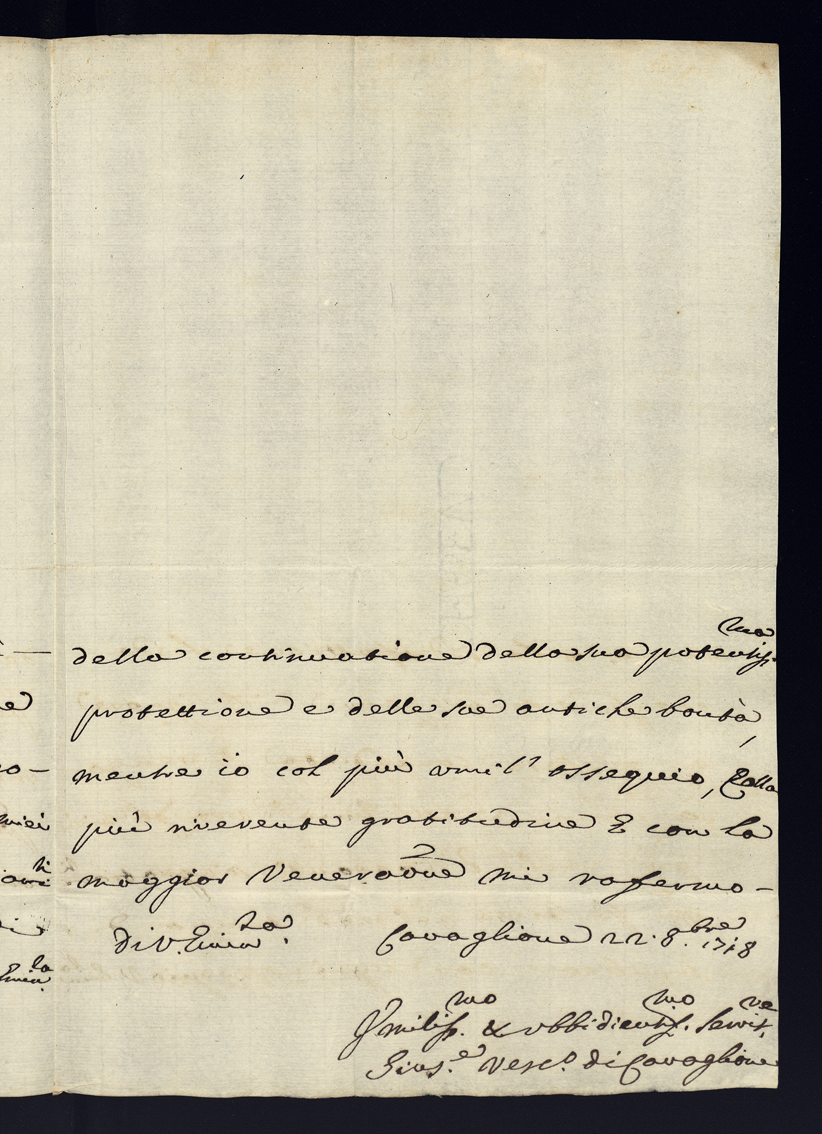 della continuatione della sua potentiss.ma
protettione e delle sue antiche bontà,
mentre io col più umil' ossequio, & alla
più riverente gratitudine & con la
maggior Veneraone mi rafermo -
di V. Emin.za Cavaglione 22. 8.bre 1718
Vmiliss.mo & vbbidientiss.mo Servit.re
Gius.e Vesc.o di Cavaglione